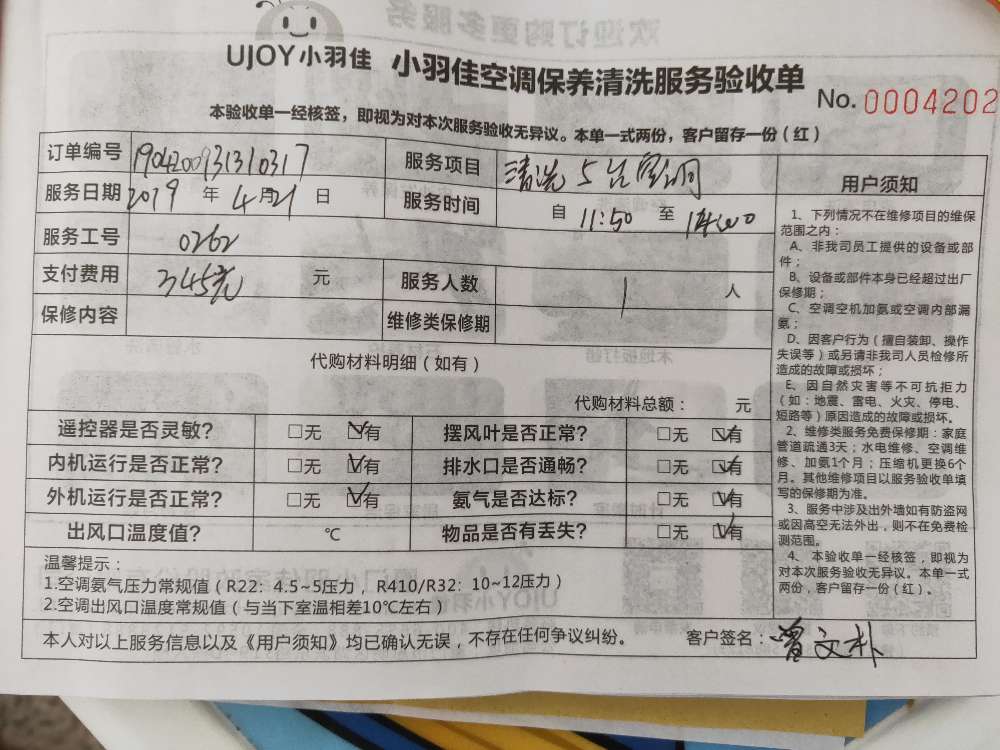 UJOY小羽佳 小羽佳空调保养清洗服务验收单
No. 0004202
本验收单一经核签，即视为对本次服务验收无异议。本单一式两份，客户留存一份（红）
订单编号 1904200931310317 服务项目 清洗5台空调
服务日期 2019 年 4 月 21 日 服务时间 自 11:50 至 14:00
服务工号 0262
支付费用 345元 元 服务人数 1 人
保修内容 维修类保修期
代购材料明细（如有）
代购材料总额： 元
遥控器是否灵敏? □无 ☑有 摆风叶是否正常? □无 ☑有
内机运行是否正常? □无 ☑有 排水口是否通畅? □无 ☑有
外机运行是否正常? □无 ☑有 氨气是否达标? □无 ☑有
出风口温度值? ℃ 物品是否有丢失? □无 ☑有
温馨提示：
1.空调氨气压力常规值（R22: 4.5~5压力， R410/R32: 10~12压力）
2.空调出风口温度常规值（与当下室温相差10℃左右）
本人对以上服务信息以及《用户须知》均已确认无误，不存在任何争议纠纷。 客户签名：曾文朴
用户须知
1、下列情况不在维修项目的维保
范围之内：
A、非我司员工提供的设备或部
件；
B、设备或部件本身已经超过出厂
保修期；
C、空调空机加氨或空调内部漏
氨；
D、因客户行为（擅自装卸、操作
失误等）或另请非我司人员检修所
造成的故障或损坏；
E、因自然灾害等不可抗拒力
（如：地震、雷电、火灾、停电、
短路等）原因造成的故障或损坏。
2、维修类服务免费保修期：家庭
管道疏通3天；水电维修、空调维
修、加氨1个月；压缩机更换6个
月。其他维修项目以服务验收单填
写的保修期为准。
3、服务中涉及出外墙如有防盗网
或因高空无法外出，则不在免费检
测范围。
4、本验收单一经核签，即视为
对本次服务验收无异议。本单一式
两份，客户留存一份（红）。